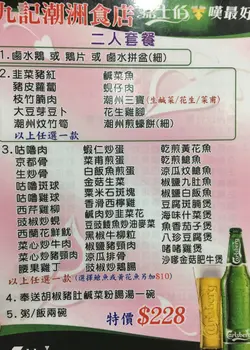 九記潮洲食店
嘆最好
二人套餐
1. 鹵水鵝 或 鵝片 或 鹵水拼盆(細)
2. 韭菜豬紅 鹹菜魚
豬皮蘿蔔 蜆仔肉
枝竹腩肉 潮州三寶(生鹹菜/花生/菜甫)
大豆芽豆卜 花生雞腳
潮州炆竹筍 潮州煎蠔餅(細)
以上任選一款
3. 咕嚕肉 蝦仁炒蛋 乾煎黃花魚
京都骨 菜甫煎蛋 乾煎鱠魚
生炒骨 白飯魚煎蛋 涼瓜炆鱠魚
咕嚕斑球 金菇生菜 椒鹽九肚魚
咕嚕雞球 粟米斑塊 椒鹽豬扒
西芹雞柳 香滑西檸雞 豆豉鯪魚
豉椒炒蜆 鹹肉炒韭菜花 海味什菜煲
西蘭花鮮魷 豆豉鯪魚炒油麥菜 魚香茄子煲
菜心炒牛肉 黑椒牛柳粒 八珍豆腐煲
菜心肉片 椒鹽一字骨 啫啫雞煲
豉椒肉片 涼瓜排骨 沙嗲金菇肥牛煲
腰果雞丁 豉椒炒鵝腸
以上任選一款 (選擇鱠魚或黃花魚另加$10)
4. 奉送胡椒豬肚鹹菜粉腸湯一碗
5. 粥/飯兩碗
特價 $228
Carlsberg